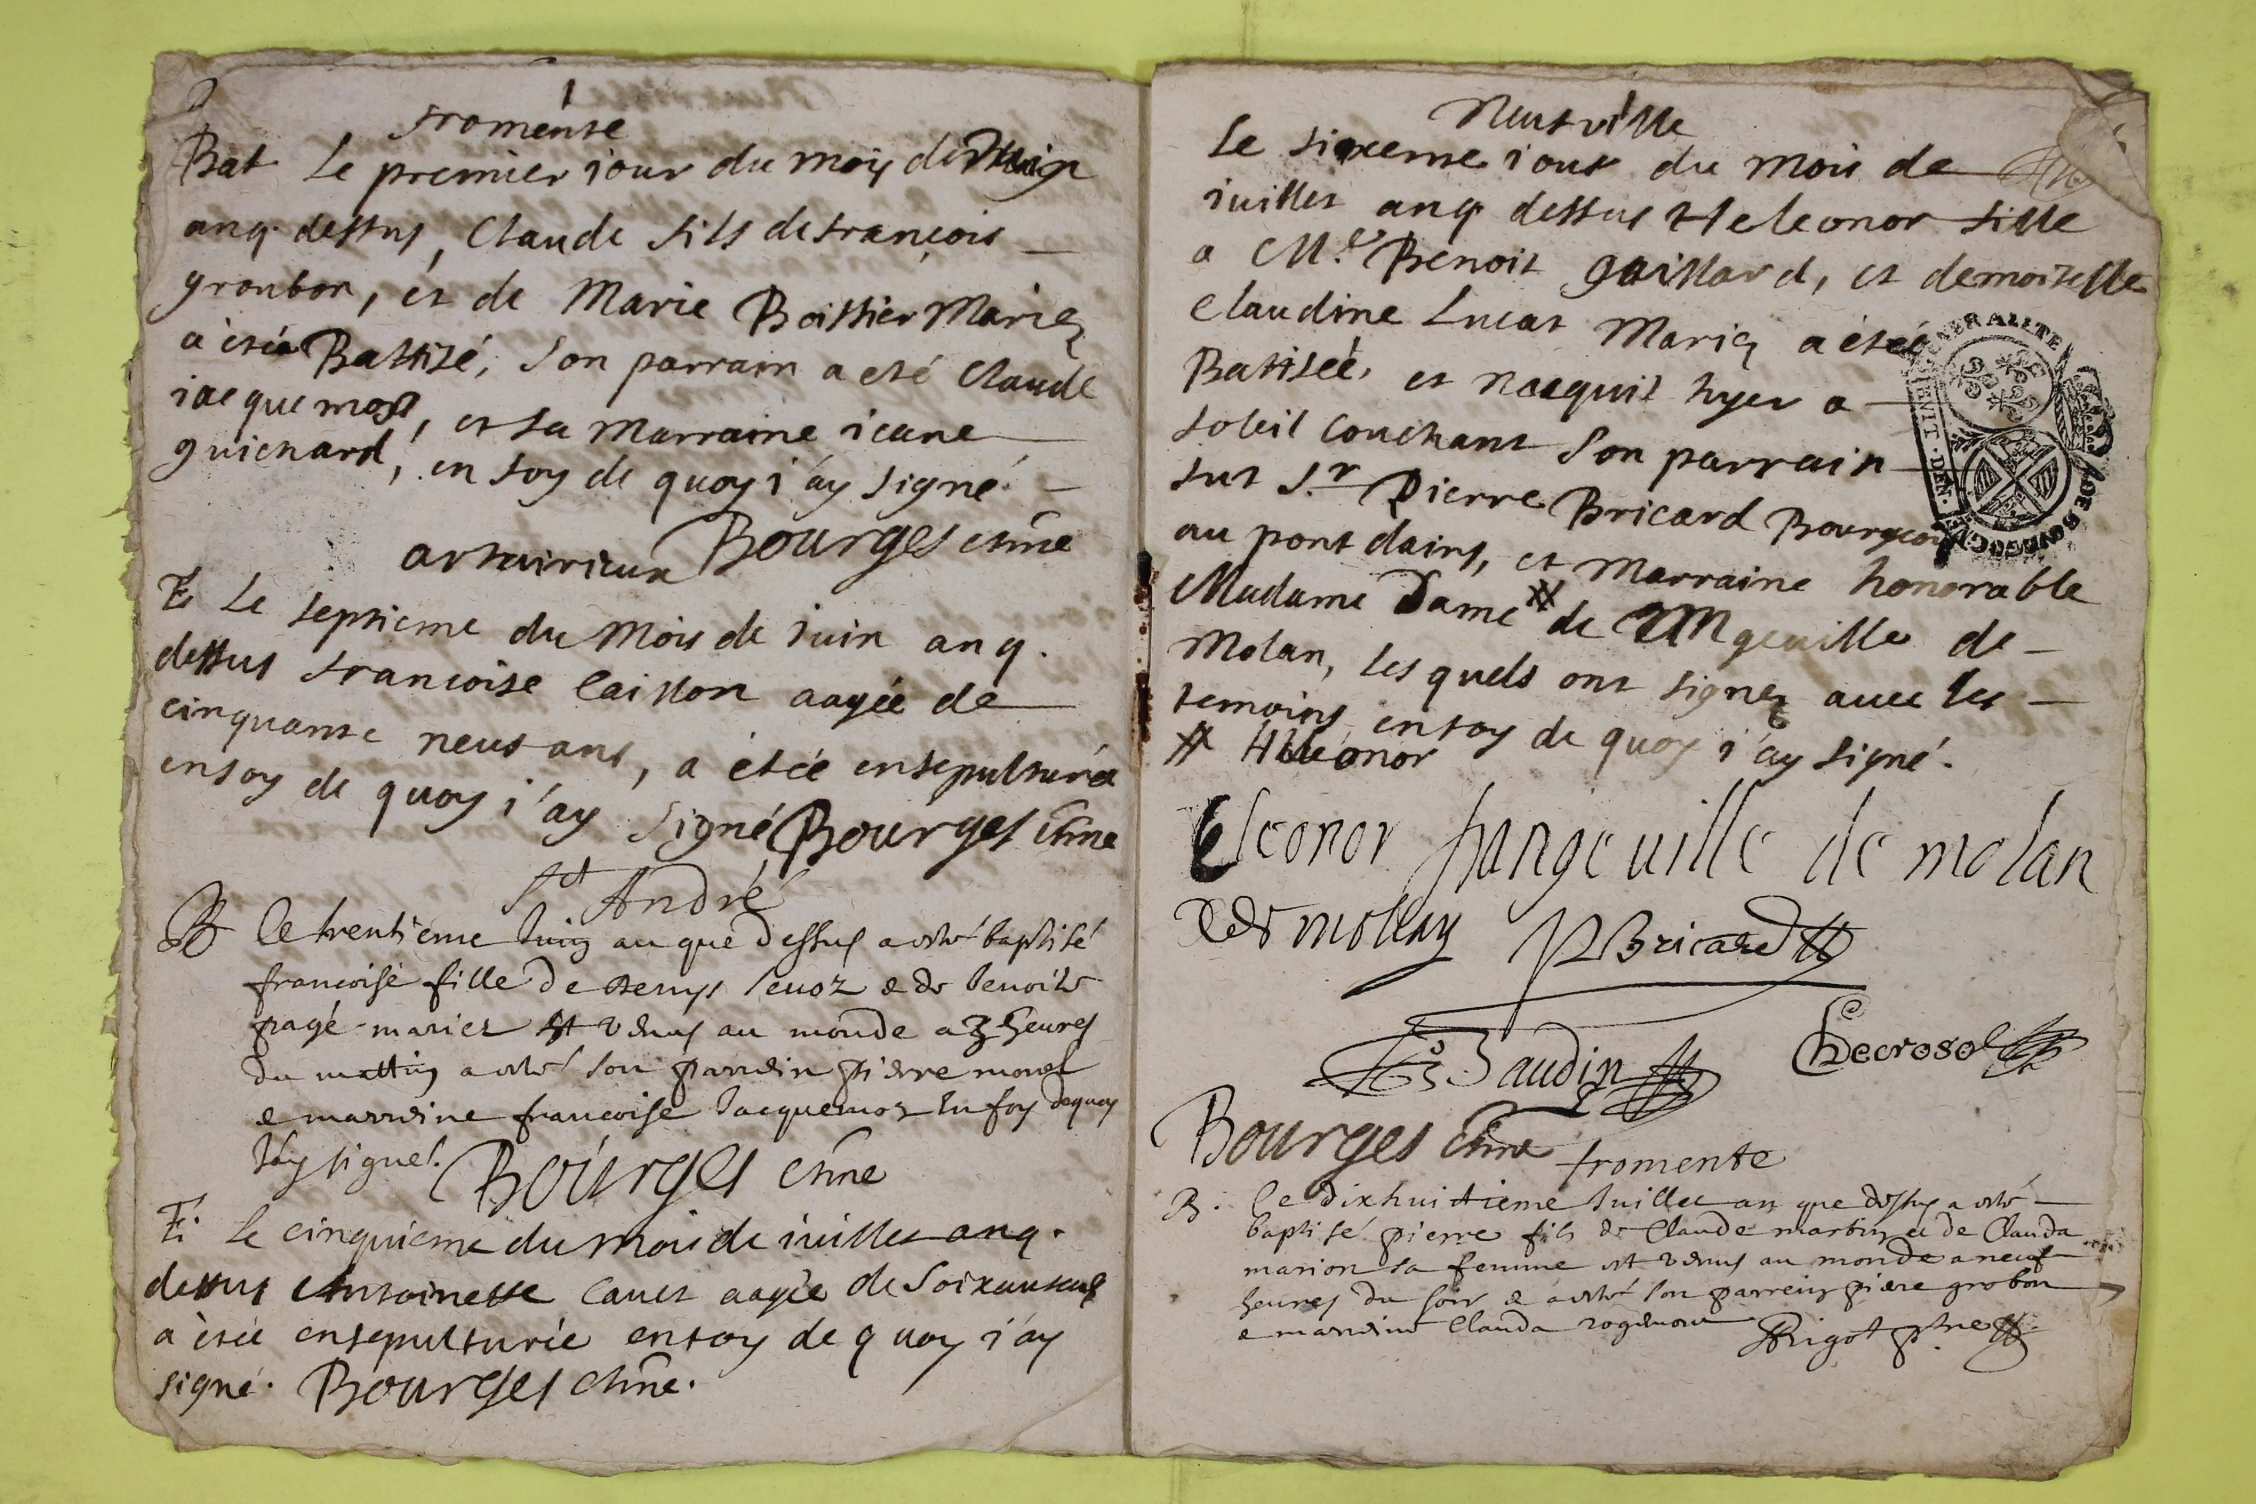 fromente
Bat Le premier iour du mois de Iuin
anq. dessus, Claude fils de françois
groubon, et de Marie Boissier Mariez
a etée Battisé, Son parrain a eté Claude
iacquemost, et sa marraine ieane
guichard, en foy de quoy i'ay signé.
Bourges chne
E. Le septieme du Mois de iuin anq.
dessus francoise Caisson aagée de
cinquante neuf ans, a étée ensepulturée
en foy de quoy i'ay signé Bourges chne
St André
B Le trentieme Iuin an que dessus a esté baptisé
francoise fille de denys Cevoz & de benoite
pagé mariez est venus au monde a 3 heures
du mattin a esté son parrein pierre monet
& marreine francoise Iacquemoz En foy dequoy
Iay signé. Bourges chne
E. Le cinquieme du mois de iuillet anq.
dessus Antoinette Canet aagée de Soixante
a étée ensepulturée en foy de quoy i'ay
signé. Bourges chne.
Neufville
Le sixieme iour du Mois de
iuillet anq dessus Heleonor fille
a Mre Benoit gaillard, et demoiselle
Claudine Lucat Mariez a étée
Battisée, et nacquit hyer a
soleil couchant Son parrain
fut Sr Pierre Bricard Bourgeois
au pont dains, et marraine honorable
Madame Dame de angeville de
Molan, les quels ont signez avec les
temoins en foy de quoy i'ay signé.
Heleonor
Eleonor hangeuille de molan
PBricard
Baudin Decroso
Bourges chne fromente
B. Le dixhuitieme Iuillet an que dessus a esté
baptisé pierre fils de Claude martin et de Clauda
marion sa femme est venus au monde a neuf
heures du soir & a esté son parrein piere grobon
& marreine Clauda
Rigot ptre
GENERALITE DE BOURGOGNE